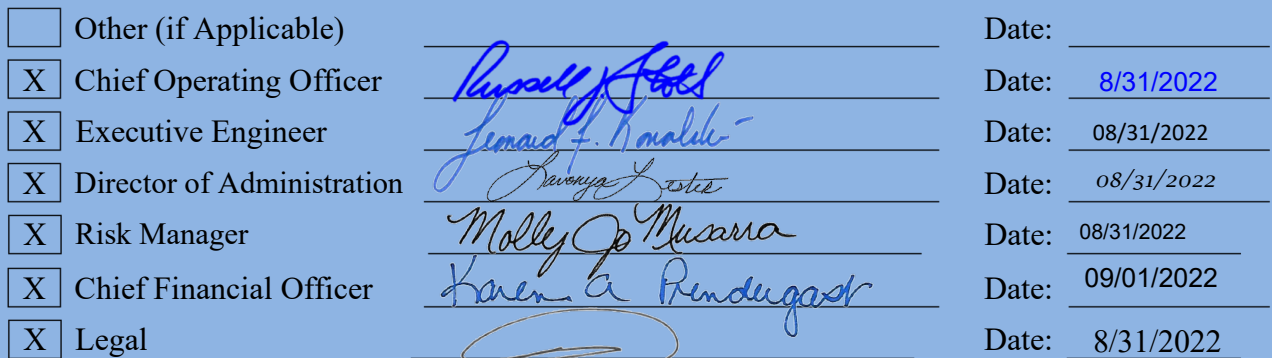 Other (if Applicable) Date:
X Chief Operating Officer Russell J. Date: 8/31/2022
X Executive Engineer Leonard F. Date: 08/31/2022
X Director of Administration Lavonya Lester Date: 08/31/2022
X Risk Manager Molly Jo Musarra Date: 08/31/2022
X Chief Financial Officer Karen A Pendergast Date: 09/01/2022
X Legal Date: 8/31/2022